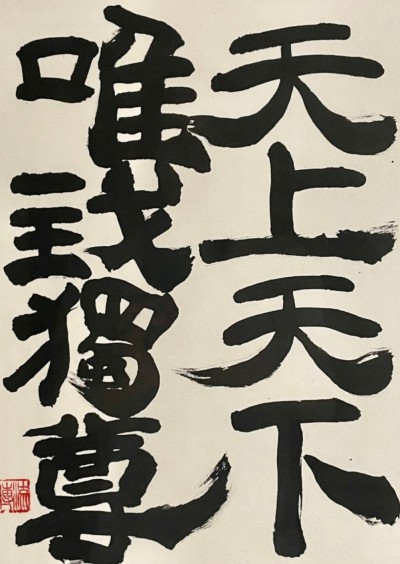 天上天下
唯我獨尊